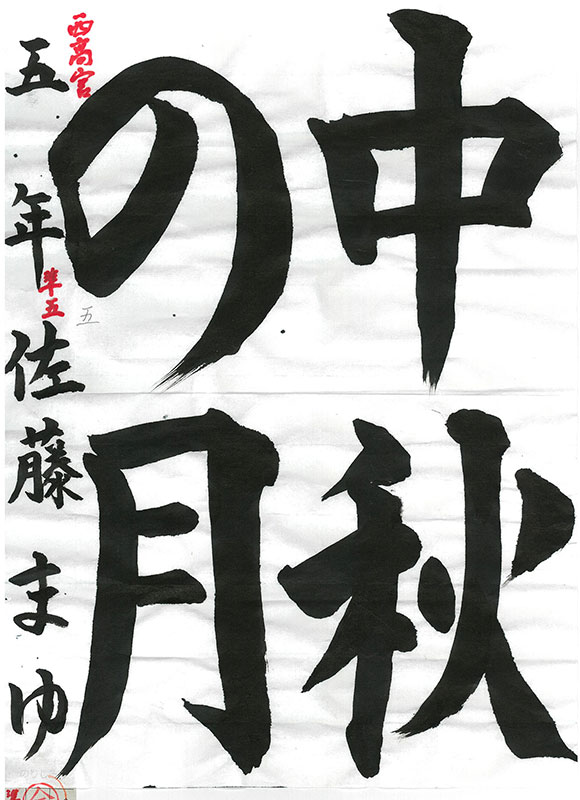 中秋
の月
五年 佐藤まゆ
西高宮
準五
五